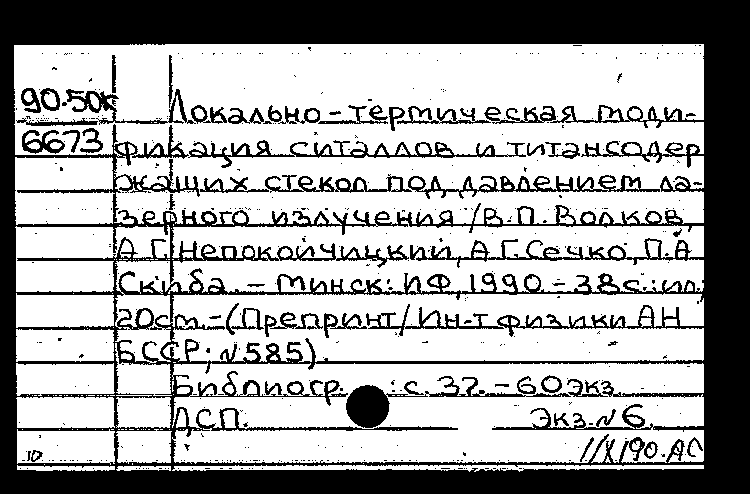 90-50к Локально-термическая моди-
6673 фикация ситаллов и титансодер
жащих стекол под давлением ла-
зерного излучения /В.П.Волков,
А.Г.Непокойчицкий, А.Г.Сечко, П.А
Скиба. - Минск: ИФ, 1990. - 38с.: ил;
20см. - (Препринт/Ин-т физики АН
БССР; N585).
Библиогр.: с. 37. - 60экз
ДСП. Экз. N6.
10 11/X190.АС